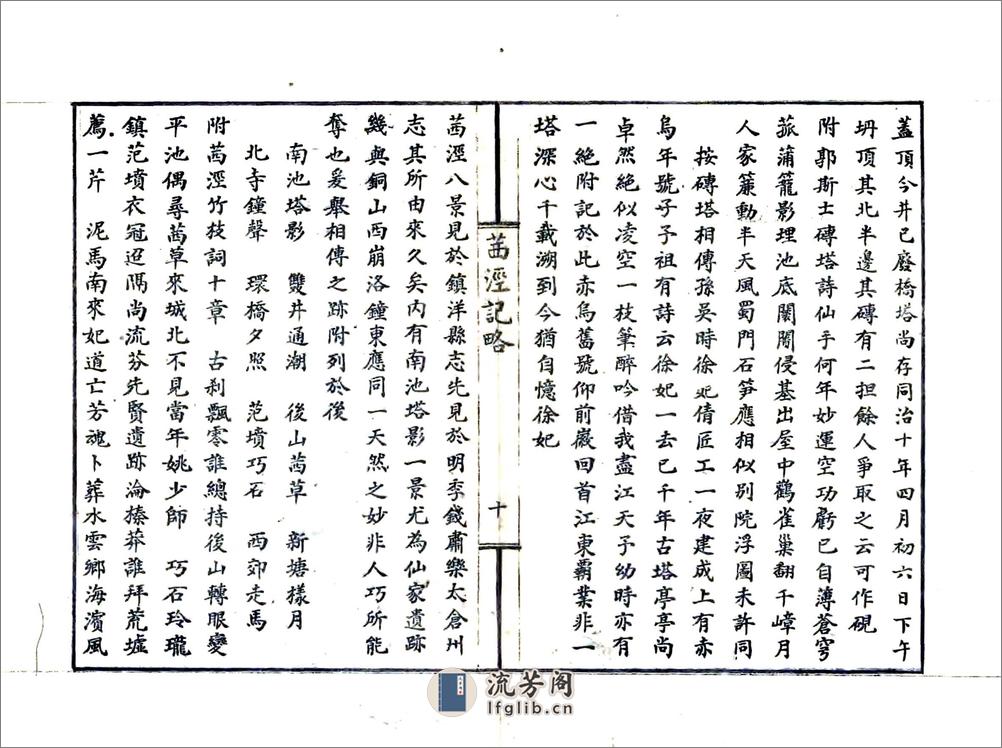 蓋頂今井已廢橋塔尚存同治十年四月初六日下午
坍頂其北半邊其磚有二担餘人爭取之云可作硯
附郭斯士磚塔詩仙乎何年妙運空功虧已自薄蒼穹
菰蒲籠影埋池底闤闠侵基出屋中鸛雀巢翻千嶂月
人家簾動半天風蜀門石笋應相似別院浮圖未許同
按磚塔相傳孫吳時徐妃倩匠工一夜建成上有赤
烏年號予子祖有詩云徐妃一去已千年古塔亭亭尚
卓然絕似凌空一枝筆醉吟借我盡江天予幼時亦有
一絕附記於此赤烏舊號仰前巖回首江東霸業非一
塔深心千載溯到今猶自憶徐妃
茜涇記略
十
茜涇八景見於鎮洋縣志先見於明季錢肅樂太倉州
志其所由來久矣內有南池塔影一景尤為仙家遺跡
幾與銅山西崩洛鐘東應同一天然之妙非人巧所能
奪也爰舉相傳之跡附列於後
南池塔影 雙井通潮 後山茜草 新塘樣月
北寺鐘聲 環橋夕照 范墳巧石 西郊走馬
附茜涇竹枝詞十章 古刹飄零誰總持後山轉眼變
平池偶尋茜草來城北不見當年姚少師 巧石玲瓏
鎮范墳衣冠迢隅尚流芬先賢遺跡淪榛莽誰拜荒墟
薦一芹 泥馬南來妃道亡芳魂卜葬水雲鄉海濱風
流芳阁
lfglib.cn